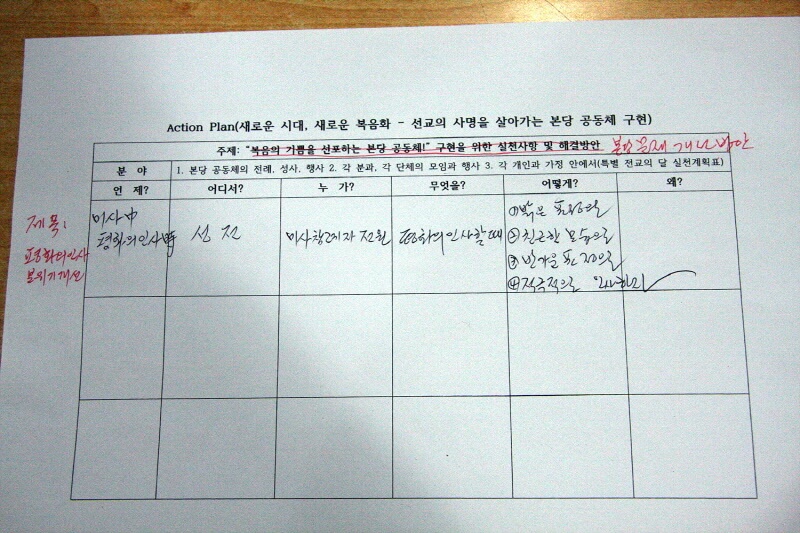 Action Plan(새로운 시대, 새로운 복음화 - 선교의 사명을 살아가는 본당 공동체 구현)
주제: "복음의 기쁨을 선포하는 본당 공동체!" 구현을 위한 실천사항 및 해결방안 본당 문제 개선 방안
분 야 1. 본당 공동체의 전례, 성사, 행사 2. 각 분과, 각 단체의 모임과 행사 3. 각 개인과 가정 안에서(특별 전교의 달 실천계획표)
언 제? 어디서? 누 가? 무엇을? 어떻게? 왜?
제목:
평화의인사
분위기개선
미사中
평화의인사時
성 전
미사참례자 전원
평화의인사할때
①밝은 표정으로
②친근한 모습으로
③반가운 표정으로
④적극적으로 인사하기